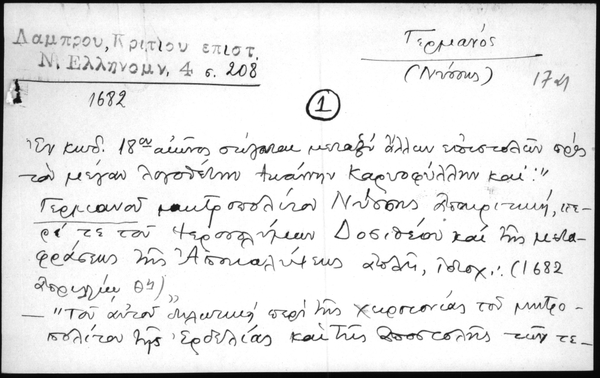 Λαμπρου, Κριτίου επιστ.
Ν. Ελληνομν. 4 σ. 208
Γερμανός
(Νύσσης)
1721
1682
1
Ἐν κωδ. 18ου αἰῶνος σώζονται μεταξὺ ἄλλων ἐπιστολῶν πρὸς
τὸν μέγαν λογοθέτην Ἰωάννην Καρυοφύλλην καὶ: "
Γερμανοῦ μητροπολίτου Νύσσης ἀποκριτική, πε-
ρί τε τοῦ Ἱεροσολύμων Δοσιθέου καὶ τῆς μετα-
φράσεως τῆς Ἀποκαλύψεως (1682
Ἀπριλλίου θῃ) "
— "Τοῦ αὐτοῦ δηλωτικὴ περὶ τῆς χειροτονίας τοῦ μητρο-
πολίτου τῆς Ἐρδελίας καὶ τῆς ἀποστολῆς τῶν τε-